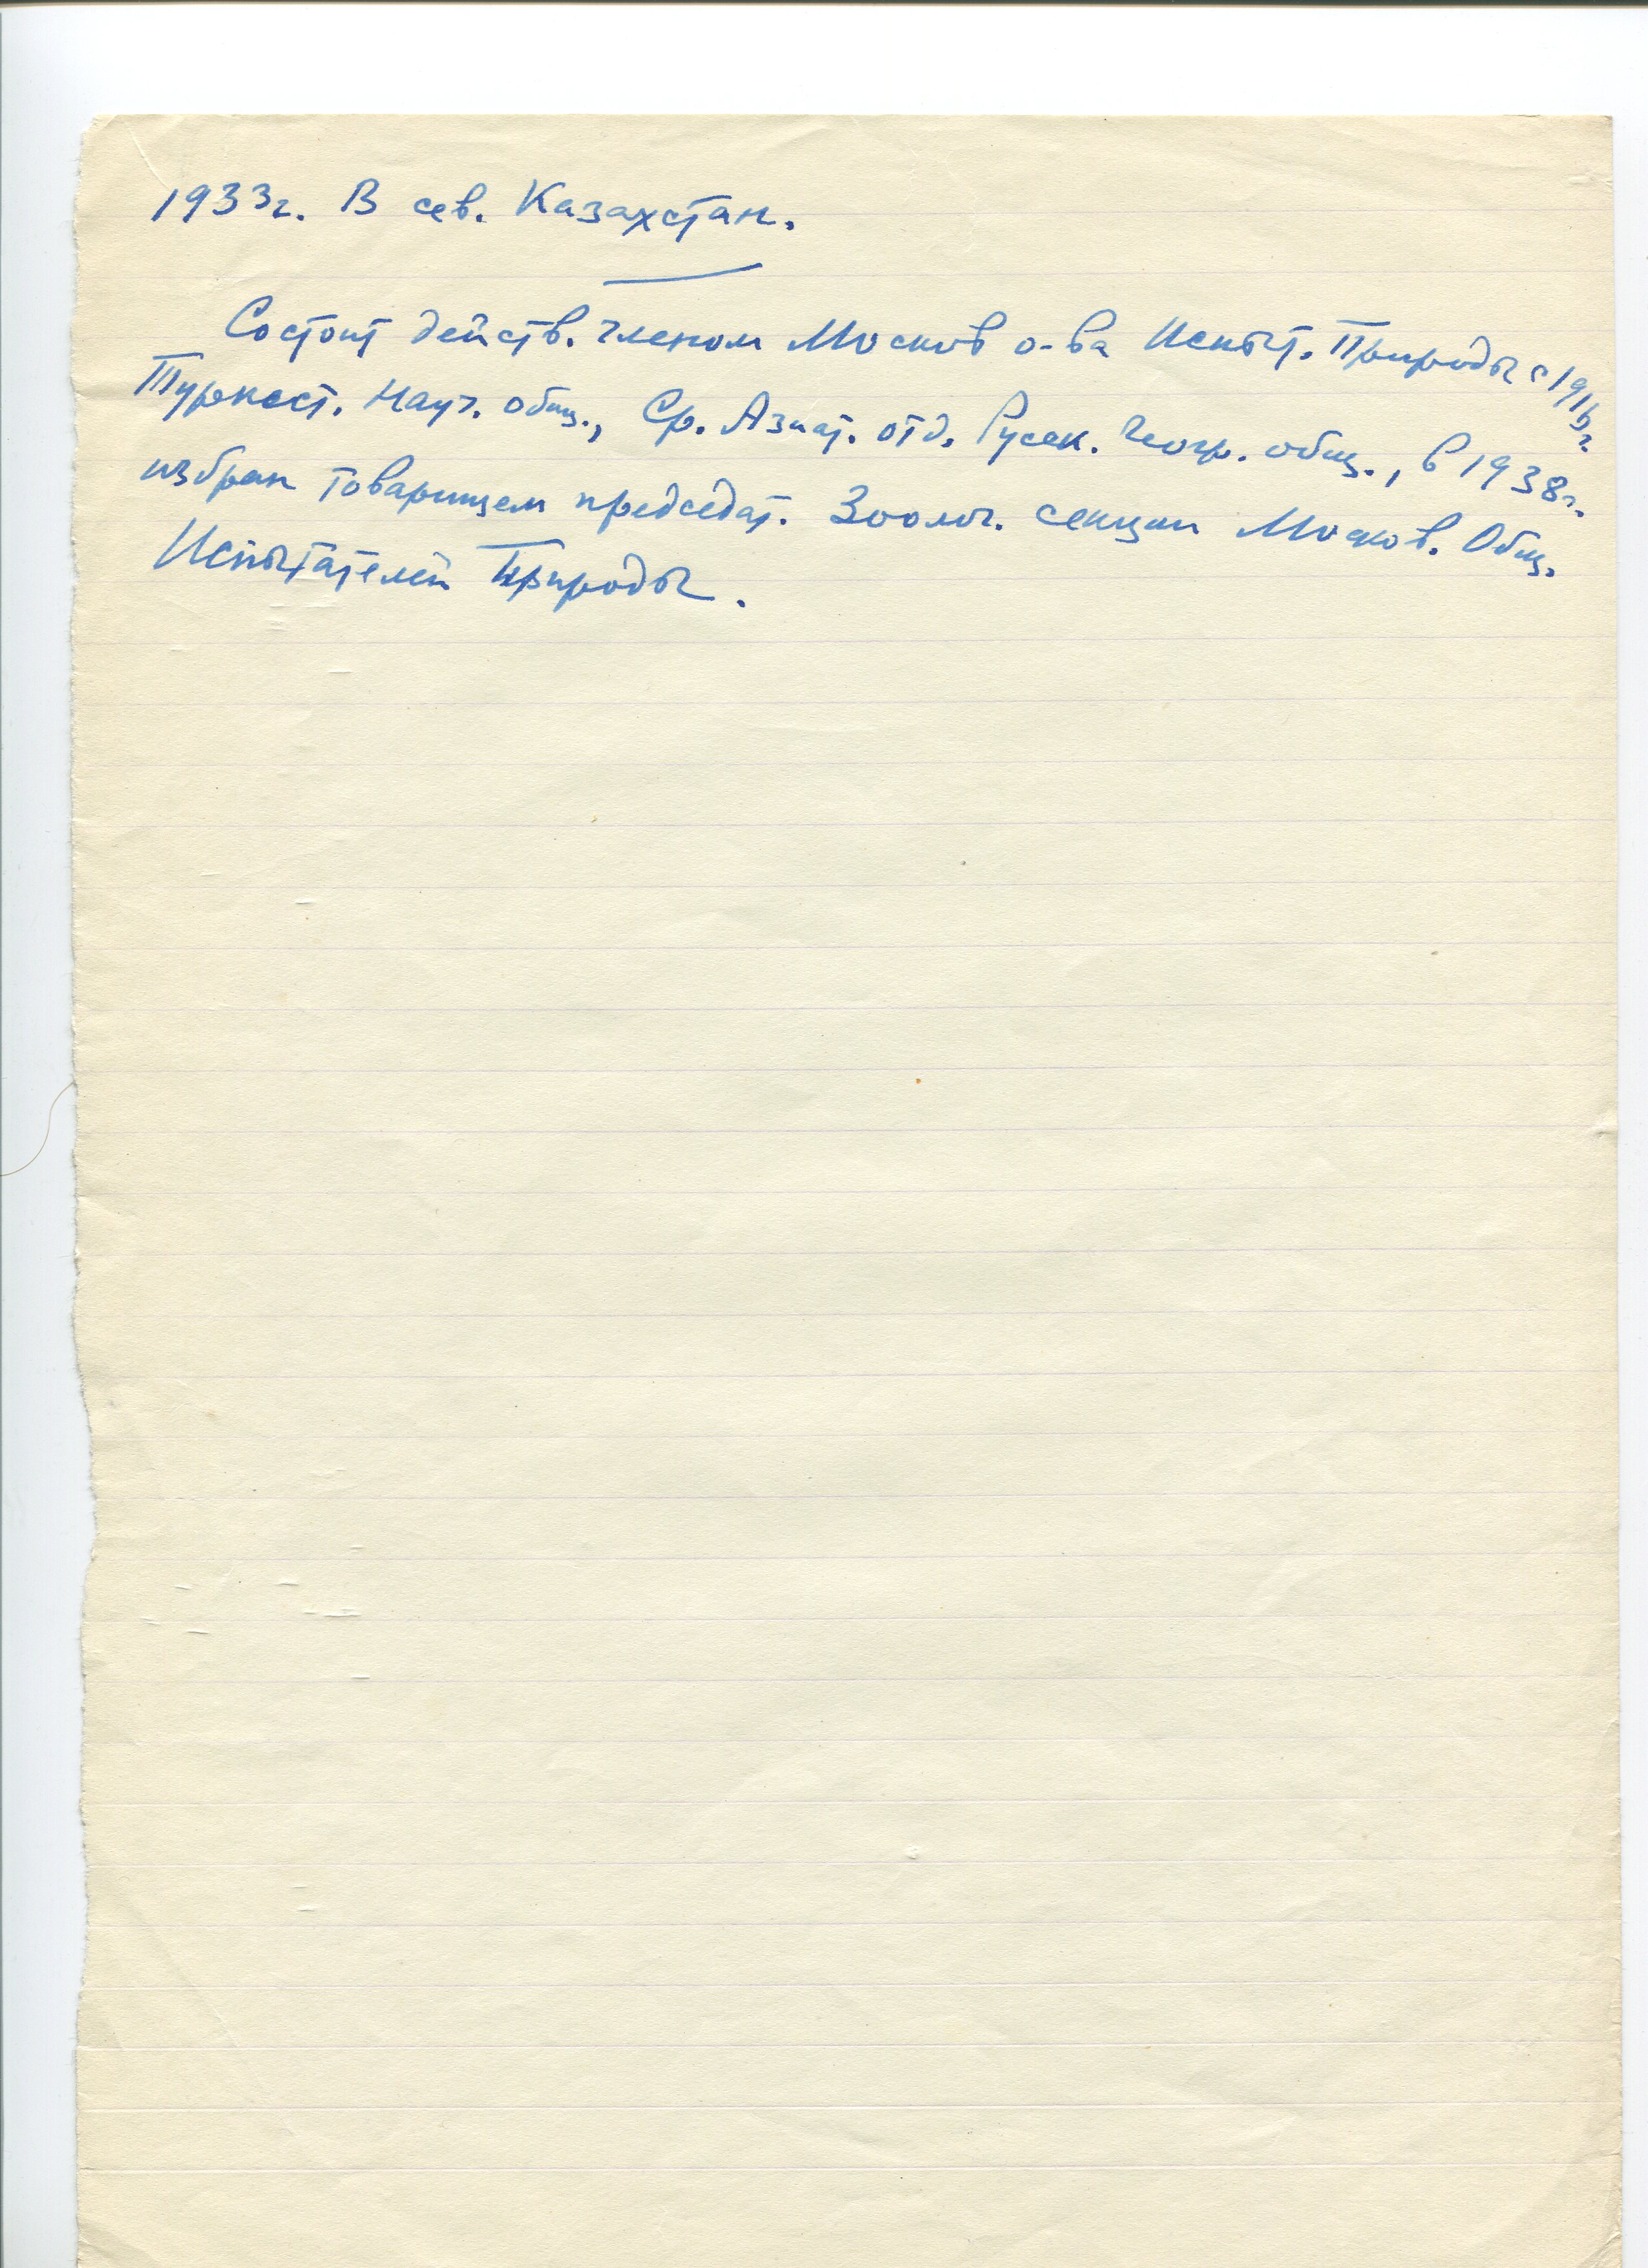 1933г. В сев. Казахстан.
Состоит действ. членом Москов о-ва Испыт. Природы с 1916 г.
Туркест. Науч. общ., Ср. Азиат. отд. Русск. Геогр. общ., в 1938г.
избран товарищем председат. Зоолог. секции Москов. Общ.
Испытателей Природы.